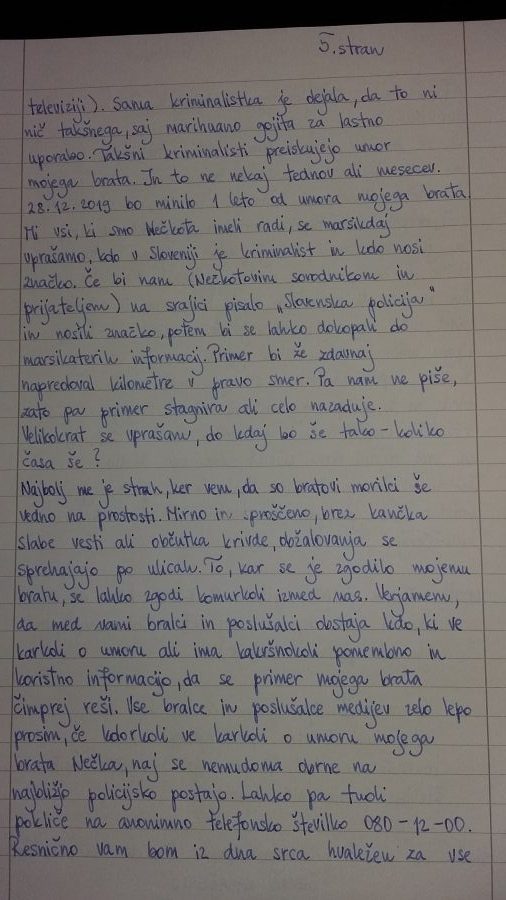 5. stran
televiziji). Sama kriminalistka je dejala, da to ni
nič takšnega, saj marihuano gojita za lastno
uporabo. Takšni kriminalisti preiskujejo umor
mojega brata. In to ne nekaj tednov ali mesecev.
28.12.2019 bo minilo 1 leto od umora mojega brata.
Mi vsi, ki smo Nečkota imeli radi, se marsikdaj
vprašamo, kdo v Sloveniji je kriminalist in kdo nosi
značko. Če bi nam (Nečkotovim sorodnikom in
prijateljem) na srajici pisalo "Slovenska policija"
in nosili značko, potem bi se lahko dokopali do
marsikaterih informacij. Primer bi že zdavnaj
napredoval kilometre v pravo smer. Pa nam ne piše,
zato pa primer stagnira ali celo nazaduje.
Velikokrat se vprašam, do kdaj bo še tako - koliko
časa še?
Najbolj me je strah, ker vem, da so bratovi morilci še
vedno na prostosti. Mirno in sproščeno, brez kančka
slabe vesti ali občutka krivde, obžalovanja se
sprehajajo po ulicah. To, kar se je zgodilo mojemu
bratu, se lahko zgodi komurkoli izmed nas. Verjamem,
da med vami bralci in poslušalci obstaja kdo, ki ve
karkoli o umoru ali ima kakršnokoli pomembno in
koristno informacijo, da se primer mojega brata
čimprej reši. Vse bralce in poslušalce medijev zelo lepo
prosim, če kdorkoli ve karkoli o umoru mojega
brata Nečka, naj se nemudoma obrne na
najbližjo policijsko postajo. Lahko pa tudi
pokliče na anonimno telefonsko številko 080-12-00.
Resnično vam bom iz dna srca hvaležen za vse